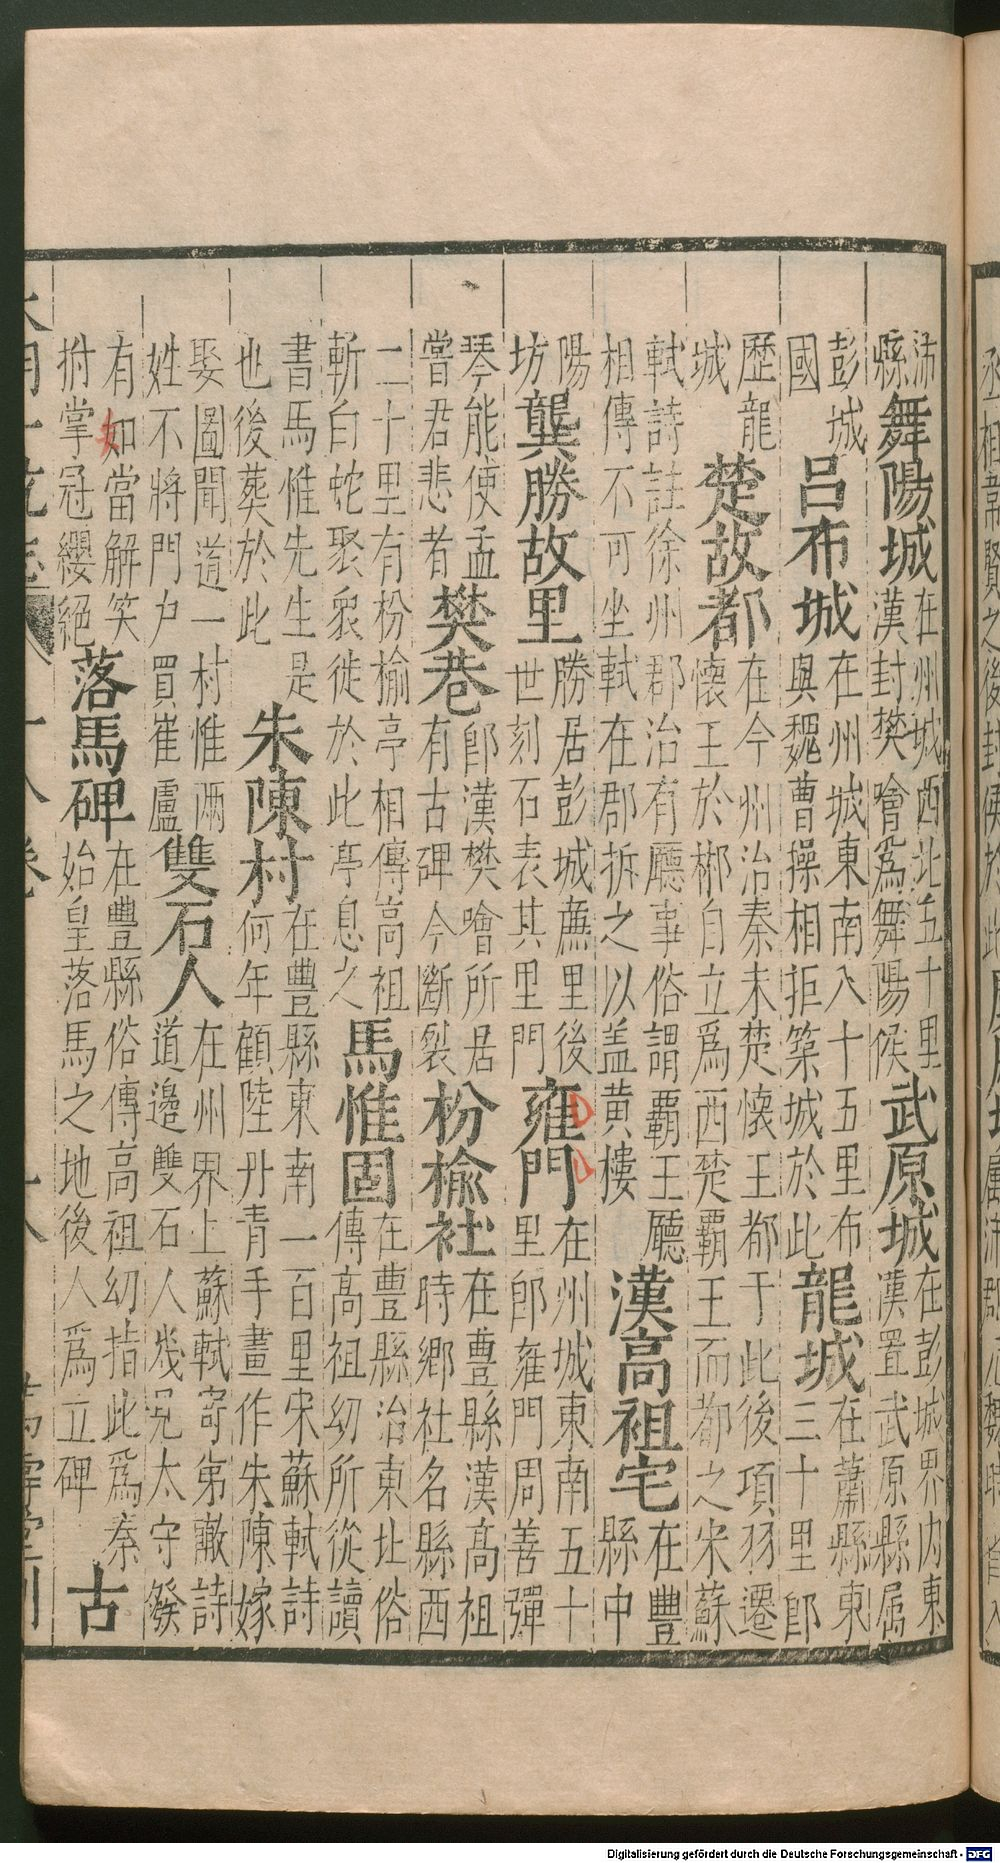 沛縣舞陽城在州城西北五十里漢封樊噲爲舞陽侯武原城在彭城界內東漢置武原縣屬
彭城國呂布城在州城東南八十五里布與魏曹操相拒築城於此龍城在蕭縣東三十里即
歷龍城楚故都在今州治秦末楚懷王都于此後項羽遷懷王於郴自立爲西楚霸王而都之宋蘇
軾詩註徐州郡治有廳事俗謂霸王廳相傳不可坐軾在郡拆之以蓋黃樓漢高祖宅在豐縣中
陽坊龔勝故里勝居彭城廉里後世刻石表其里門雍門在州城東南五十里即雍門周善彈
琴能使孟嘗君悲者樊巷即漢樊噲所居有古碑今斷裂枌榆社在豐縣漢高祖時鄉社名縣西
二十里有枌榆亭相傳高祖斬白蛇聚衆徙於此亭息之馬惟固在豐縣治東北俗傳高祖幼所從讀
書馬惟先生是也後葬於此朱陳村在豐縣東南一百里宋蘇軾詩何年顧陸丹青手畫作朱陳嫁
娶圖聞道一村惟兩姓不將門户買崔盧雙石人在州界上蘇軾寄弟轍詩道邊雙石人幾見太守發
有如當解笑拊掌冠纓絕落馬碑在豐縣俗傳高祖幼指此爲秦始皇落馬之地後人爲立碑古
大明一統志 十八卷 十八 萬壽堂刊
Digitalisierung gefördert durch die Deutsche Forschungsgemeinschaft - DFG